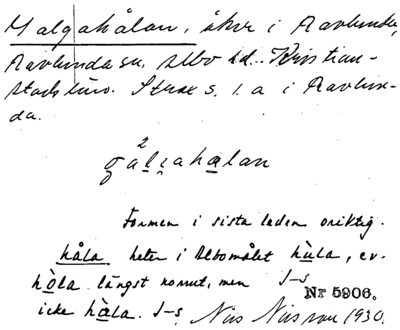 Malgahålan, åker i Ravlunda,
Ravlunda sn. Albo hd. Kristian-
stads län. Strax s. l. a i Ravlun-
da.
Formen i sista leden oriktig.
håla heter i Albomålet hùla, ev.
hòla längst norrut, men J-s
icke hàla. J-s. Nr 5906.
Nils Nilsson 1930.